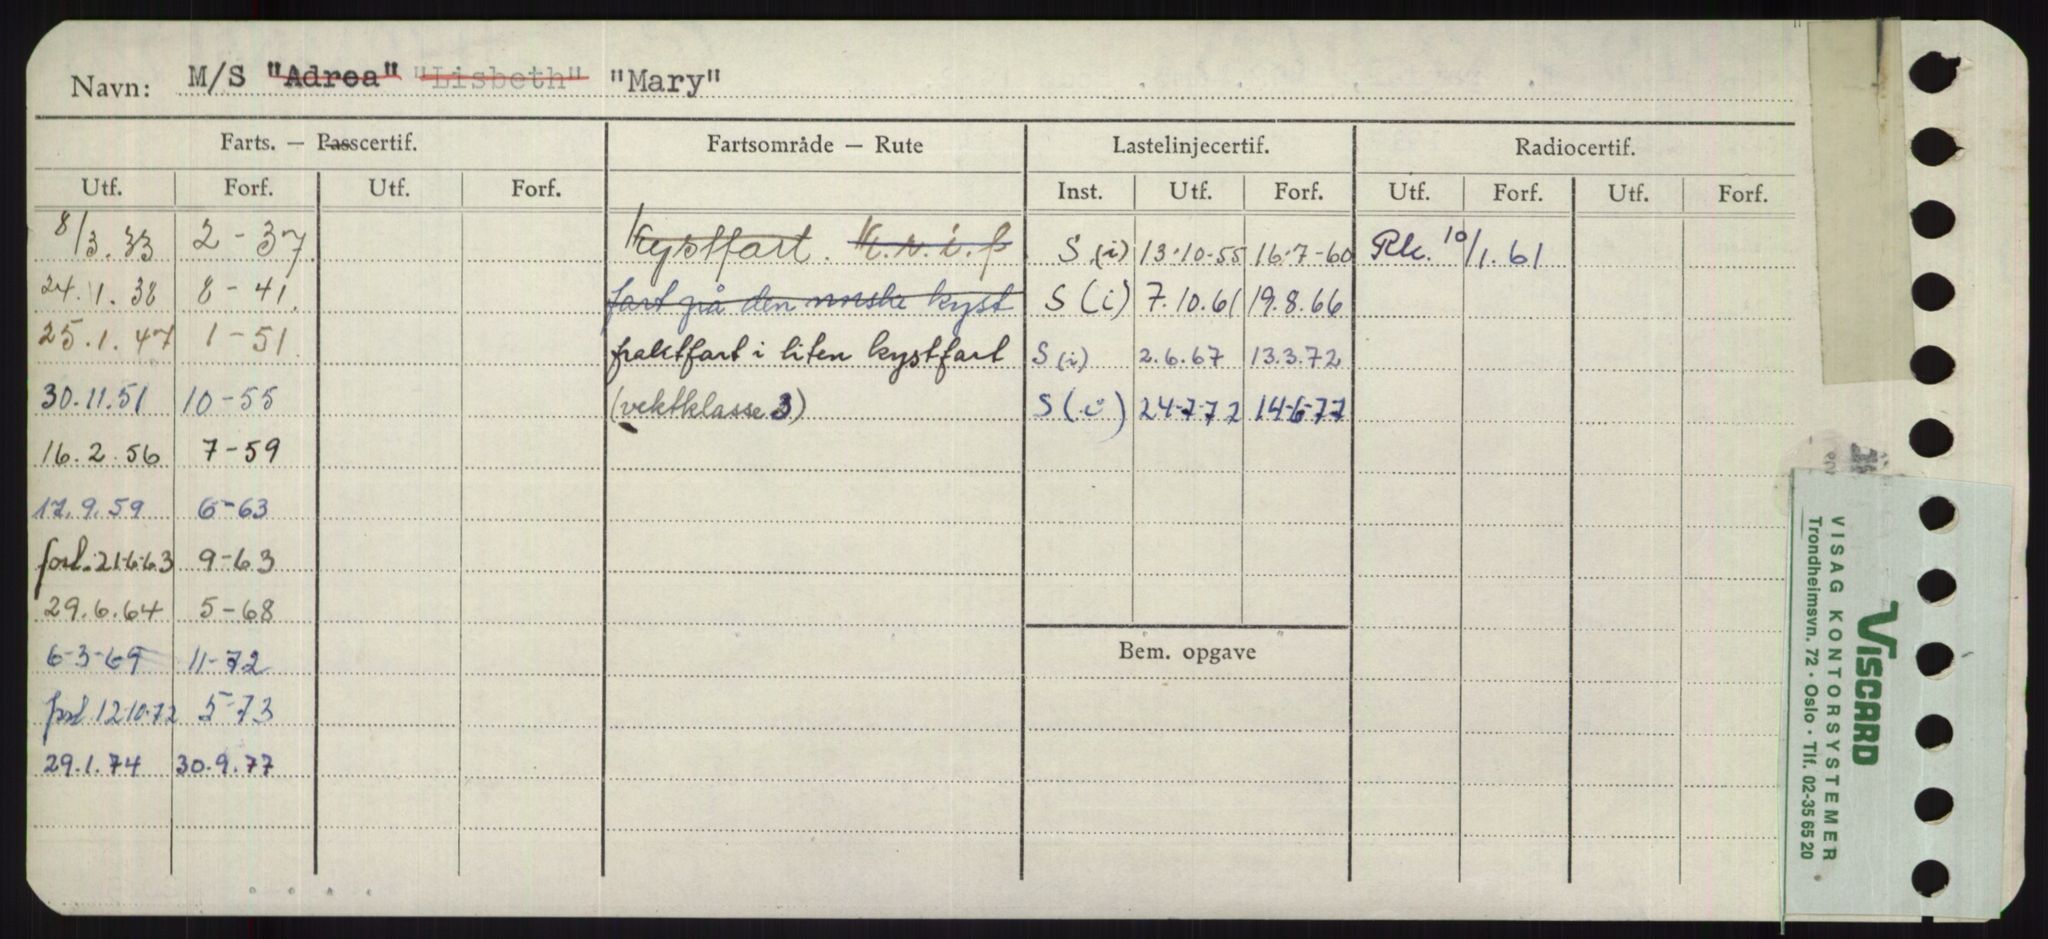 Navn: M/S "Adrea" "Lisbeth" "Mary"
Farts. — Passcertif. Fartsområde — Rute Lastelinjecertif. Radiocertif.
Utf. Forf. Utf. Forf. Inst. Utf. Forf. Utf. Forf. Utf. Forf.
8/3.33 2-37 Kystfart. K.n.i.f S.(i) 13-10-55 16-7-60 Rk. 10/1.61
24.1.38 8-41. fart på den norske kyst S(i) 7.10.61 19.8.66
25.1.47 1-51. fraktfart i liten kystfart S(i) 2.6.67 13.3.72
30.11.51 10-55 (vektklasse 3) S(i) 24-7-72 14-6-77
16.2.56 7-59
17.9.59 6-63
forl. 21-6-63 9-63
29.6.64 5-68
6-3-69 11-72
Bem. opgave
forl 12-10-72 5-73
29.1.74 30.9.77
VISCARD
VISAG KONTORSYSTEMER
Trondheimsvn. 72 · Oslo · Tlf. 02-35 65 20